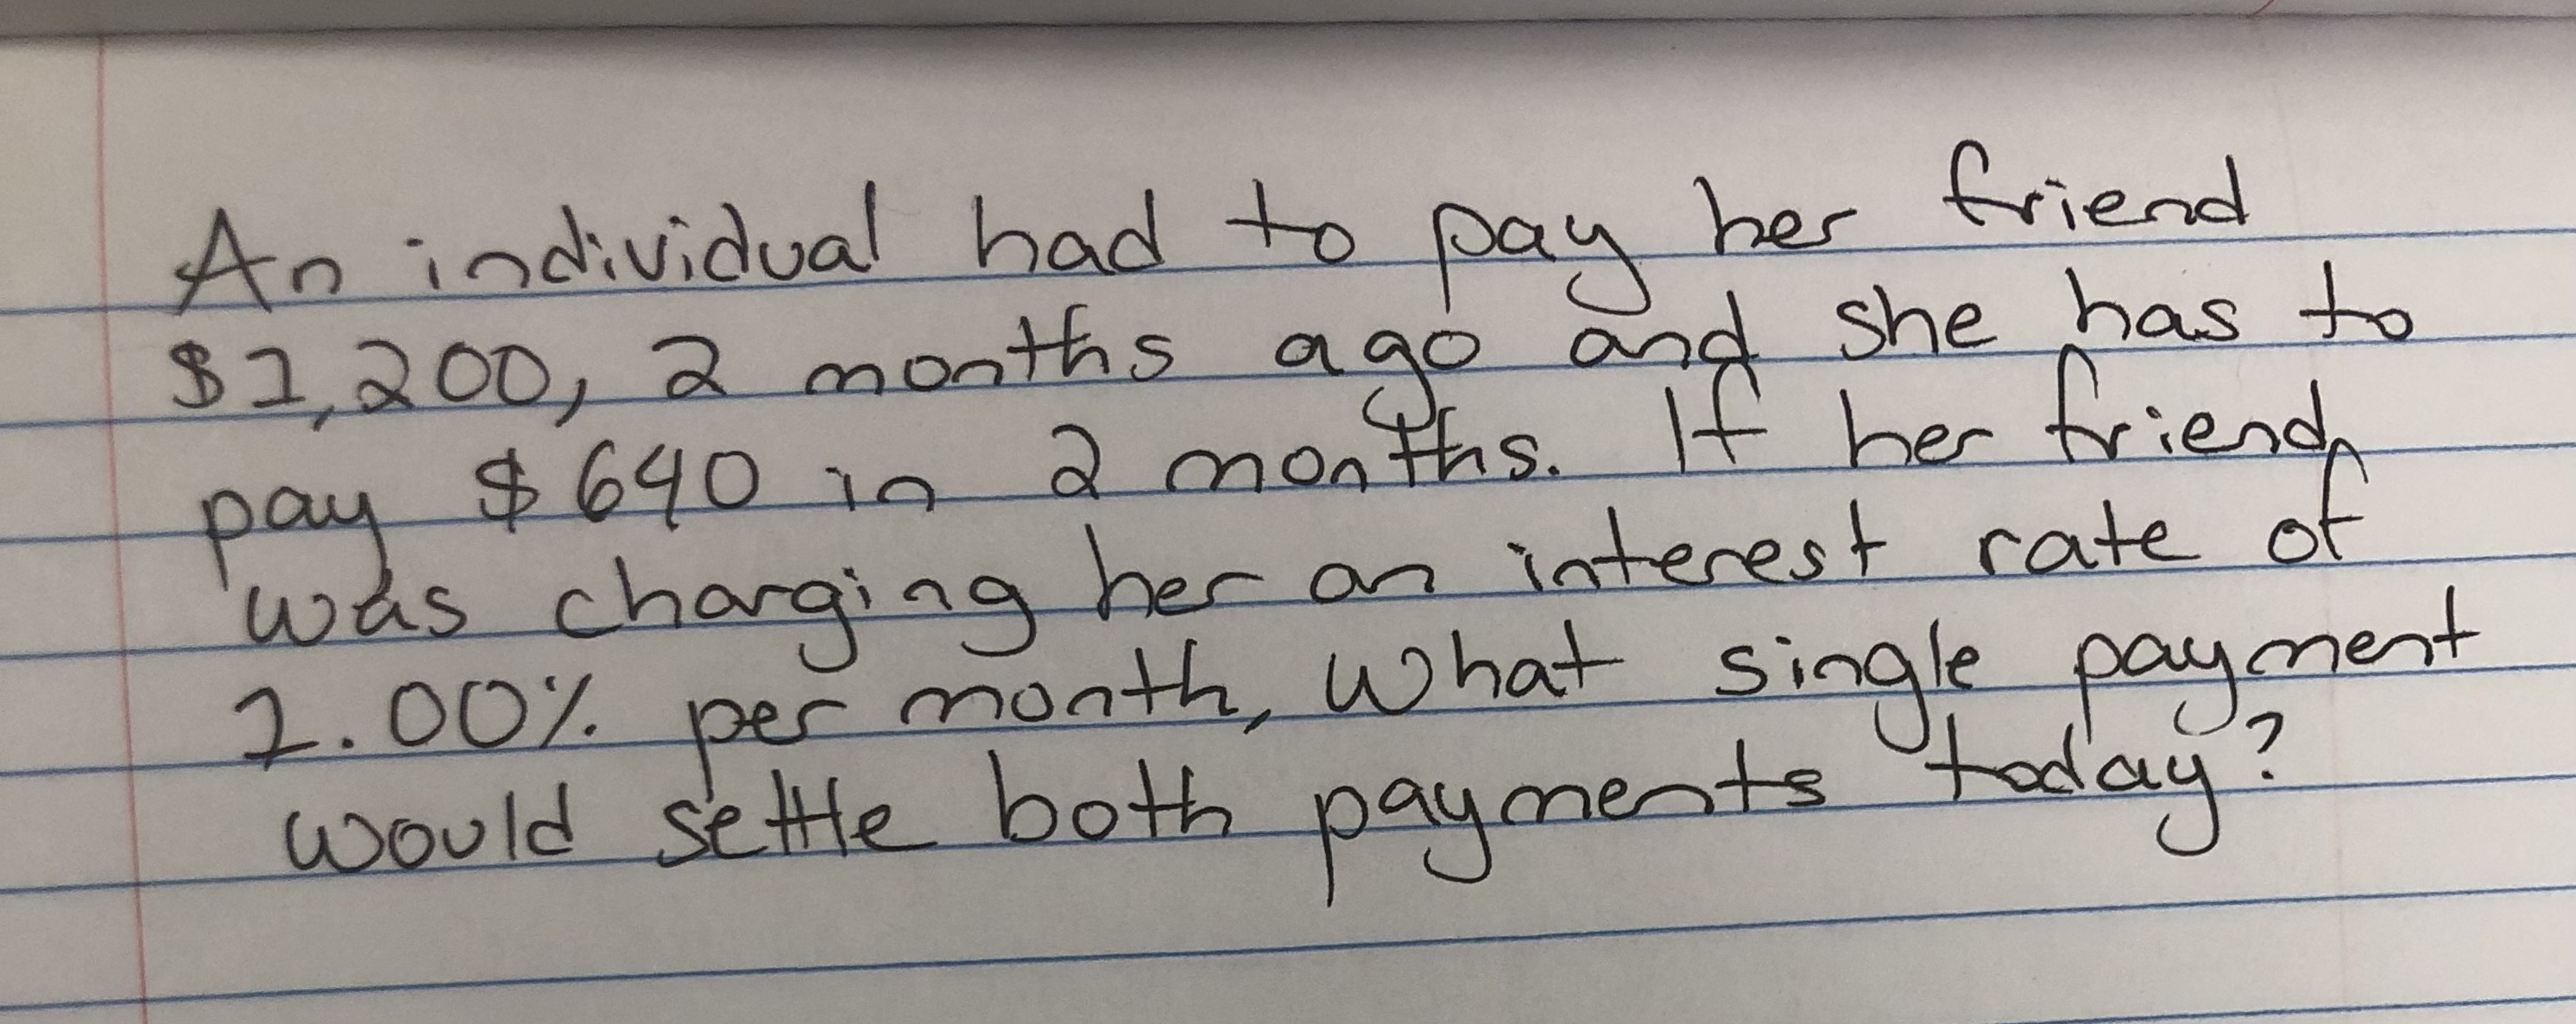 An individual had to pay her friend
$1,200, 2 months ago and she has to
pay $640 in 2 months. If her friend
was charging her an interest rate of
1.00% per month, what single payment
would settle both payments today?